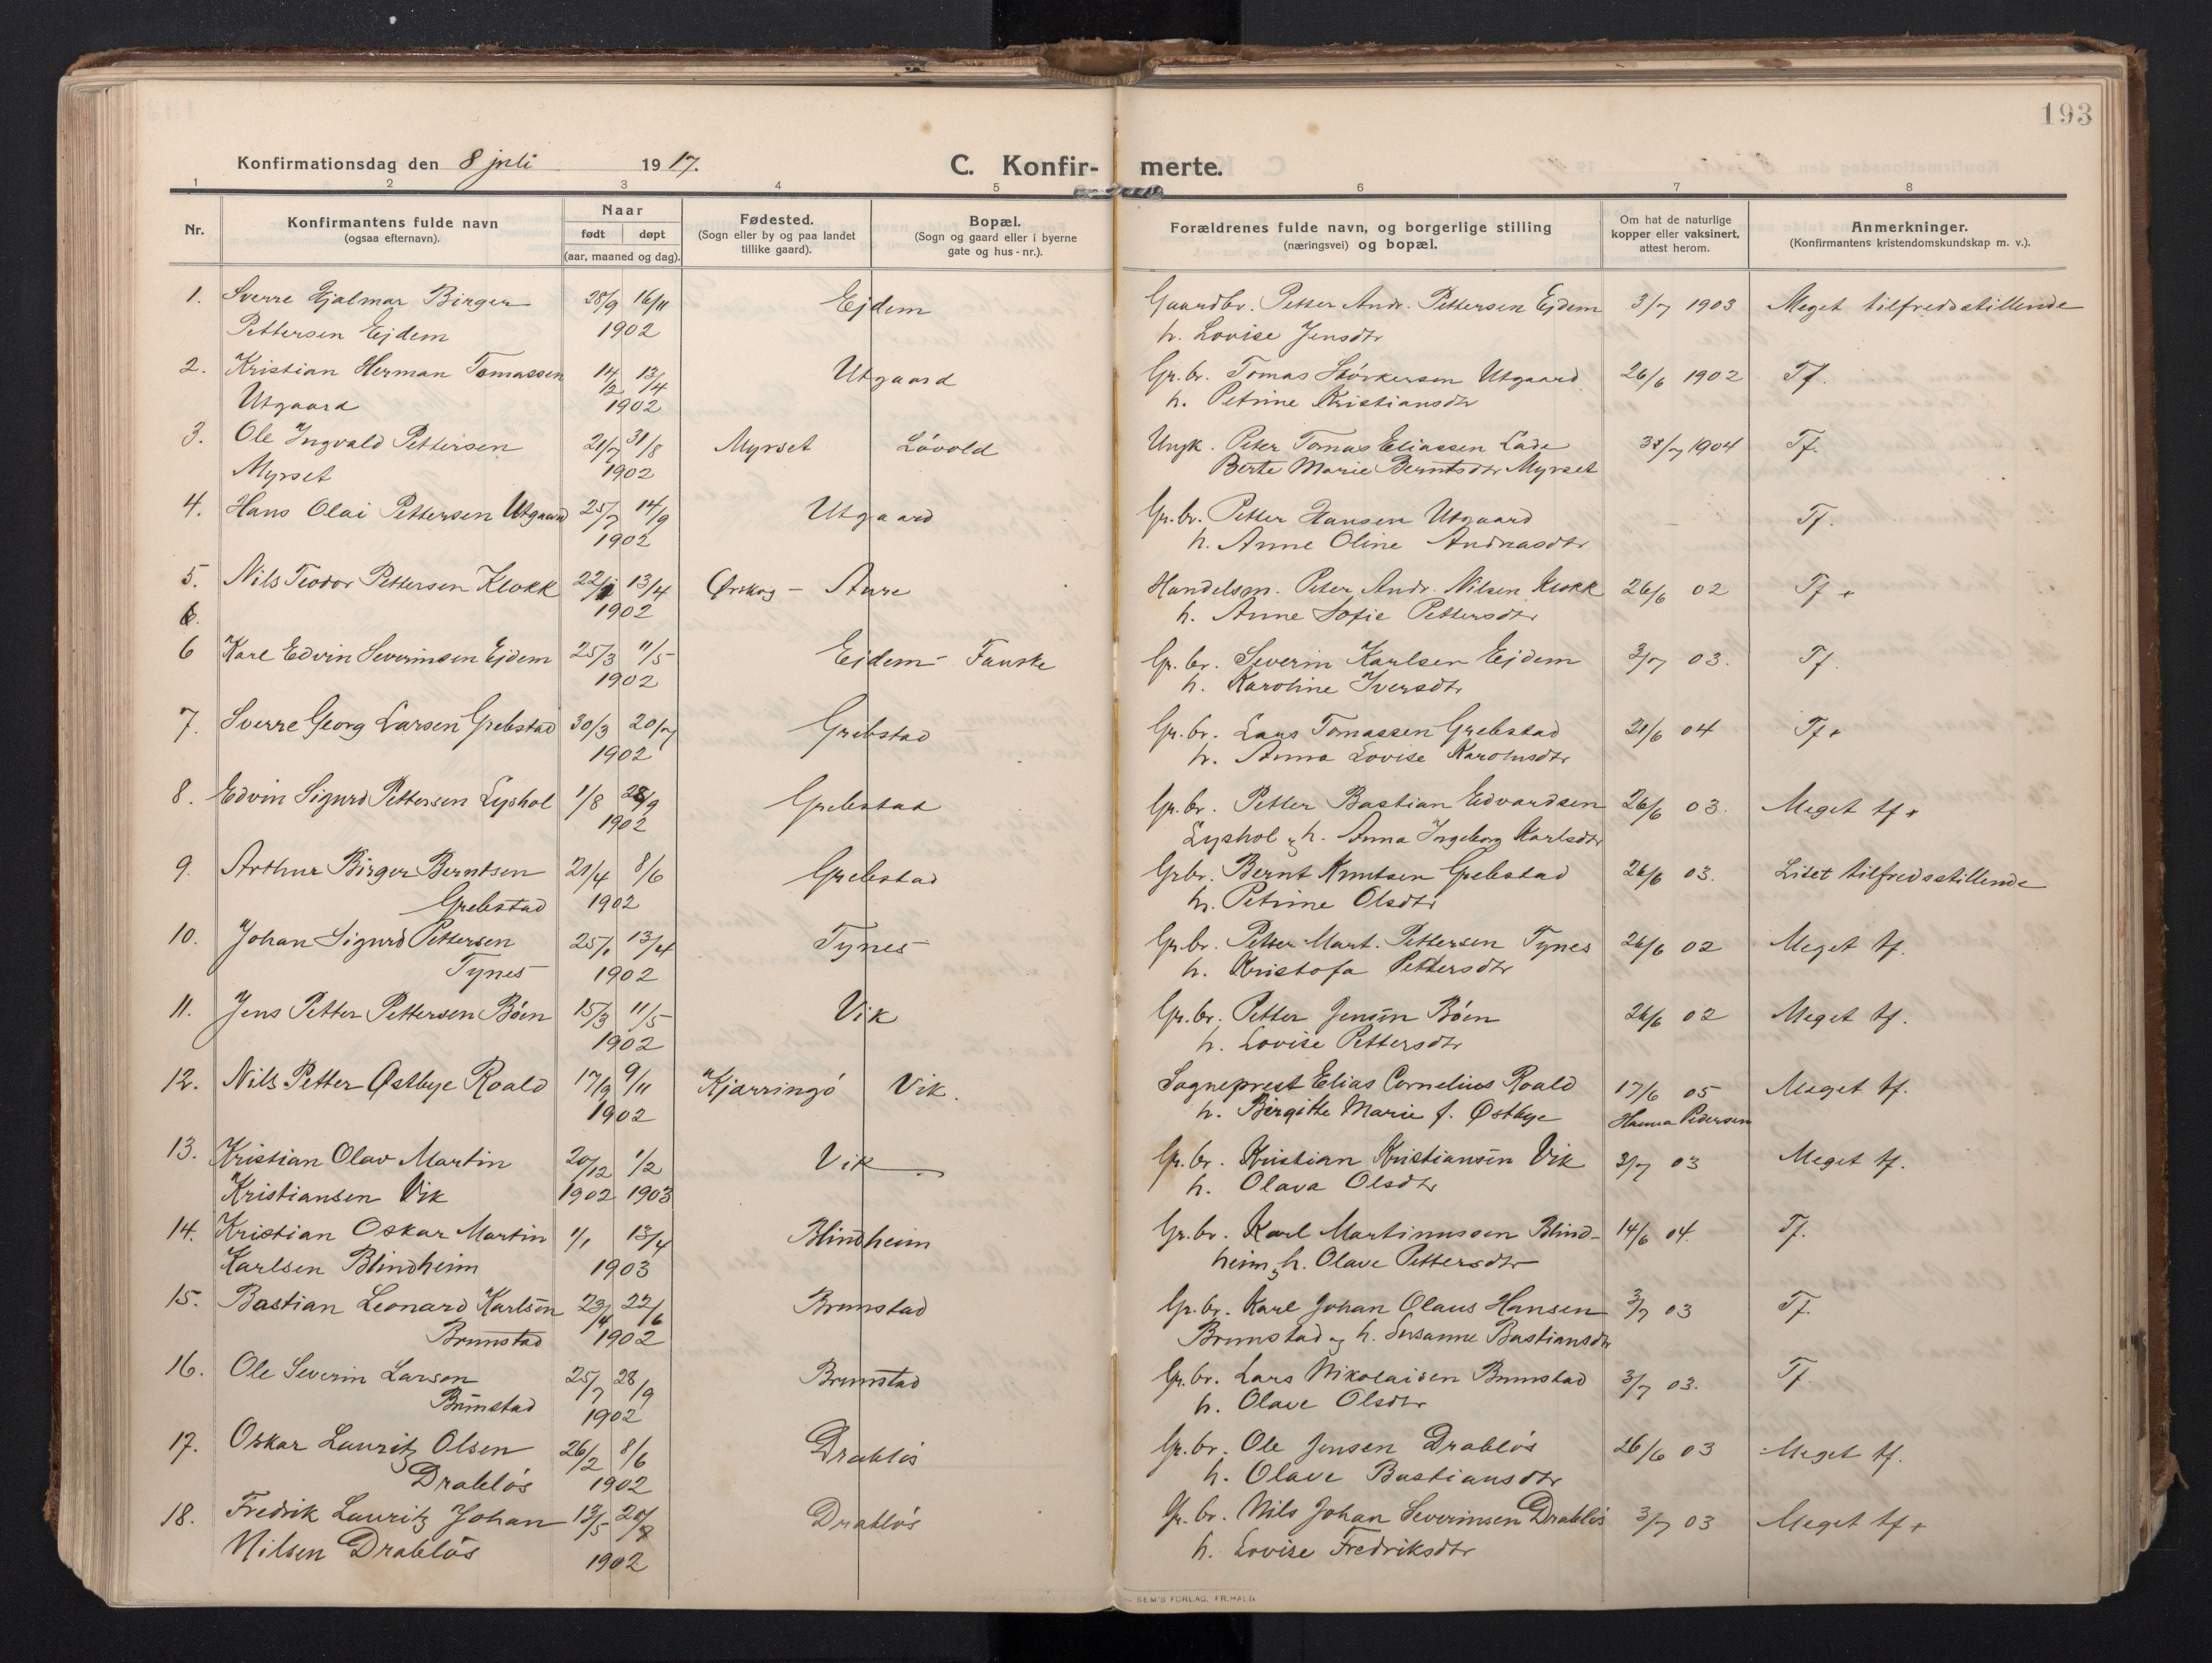 193
Konfirmationsdag den 8 juli 1917.
C. Konfir- merte.
1 2 3 4 5 6 7 8
Nr.
Konfirmantens fulde navn
(ogsaa efternavn).
Naar
født døpt
(aar, maaned og dag).
Fødested.
(Sogn eller by og paa landet
tillike gaard).
Bopæl.
(Sogn og gaard eller i byerne
gate og hus-nr.).
Forældrenes fulde navn, og borgerlige stilling
(næringsvei) og bopæl.
Om hat de naturlige
kopper eller vaksinert,
attest herom.
Anmerkninger.
(Konfirmantens kristendomskundskap m. v.).
1. Sverre Hjalmar Birger 28/9 16/11 Ejdem Gaardbr. Petter Andr. Pettersen Ejdem 3/7 1903 Meget tilfredsstillende
Pettersen Ejdem 1902 h. Lovise Jensdtr
2. Kristian Herman Tomassen 14/2 13/4 Utgaard Gr. br. Tomas Størkersen Utgaard 26/6 1902 Tf.
Utgaard 1902 h. Petrine Kristiansdtr
3. Ole Ingvald Pettersen 21/7 31/8 Myrset Løvold Ungk. Peter Tomas Eliassen Lade /7 1904 Tf.
Myrset 1902 Berte Marie Berntsdtr Myrset
4. Hans Olai Pettersen Utgaard 25/7 14/9 Utgaard Gr. br. Petter Hansen Utgaard - Tf.
1902 h. Anne Oline Andreasdtr
5. Nils Teodor Pettersen Klokk 22/1 13/4 Ørskog - Aure Handelsm. Peter Andr. Nilsen Klokk 26/6 02 Tf +
6. 1902 h. Anne Sofie Pettersdtr
6 Kare Edvin Severinsen Ejdem 25/3 11/5 Ejdem - Fauske Gr. br. Severin Karlsen Ejdem 3/7 03. Tf.
1902 h. Karoline Iversdtr
7. Sverre Georg Larsen Grebstad 30/3 20/7 Grebstad Gr. br. Lars Tomassen Grebstad 21/6 04 Tf +
1902 h. Anna Lovise Karolusdtr
8. Edvin Sigurd Pettersen Lyshol 1/8 28/9 Grebstad Gr. br. Petter Bastian Edvardsen 26/6 03. Meget tf +
1902 Lyshol og h. Anna Ingeborg Karlsdtr
9. Arthur Birger Berntsen 21/4 8/6 Grebstad Grbr. Bernt Knutsen Grebstad 26/6 03. Litet tilfredsstillende
Grebstad 1902 h. Petrine Olsdtr
10. Johan Sigurd Pettersen 25/1 13/4 Tynes Gr. br. Petter Mart. Pettersen Tynes 26/6 02 Meget tf.
Tynes 1902 h. Kristofa Pettersdtr
11. Jens Petter Pettersen Bøen 15/3 11/5 Vik Gr. br. Petter Jensen Bøen 26/6 02 Meget tf.
1902 h. Lovise Pettersdtr
12. Nils Petter Østbye Roald 17/9 9/11 Kjærringø Vik. Sogneprest Elias Cornelius Roald 17/6 05 Meget tf.
1902 h. Birgitte Marie f. Østbye Hanna Pedersen
13. Kristian Olav Martin 20/12 1/2 Vik Gr. br. Kristian Kristiansen Vik 3/7 03 Meget tf.
Kristiansen Vik 1902 1903 h. Olava Olsdtr
14. Kristian Oskar Martin 1/1 13/4 Blindheim Gr. br. Karl Martinussen Blind- 14/6 04. Tf.
Karlsen Blindheim 1903 heim og h. Olave Pettersdtr
15. Bastian Leonard Karlsen 23/4 22/6 Brunstad Gr. br. Karl Johan Olaus Hansen 3/7 03 Tf.
Brunstad 1902 Brunstad og h. Susanne Bastiansdtr
16. Ole Severin Larsen 25/7 28/9 Brunstad Gr. br. Lars Nikolaisen Brunstad 3/7 03. Tf.
Brunstad 1902 h. Olave Olsdtr
17. Oskar Lauritz Olsen 26/2 8/6 Drabløs Gr. br. Ole Jensen Drabløs 26/6 03 Meget tf.
Drabløs 1902 h. Olave Bastiansdtr
18. Fredrik Lauritz Johan 13/5 20/7 Drabløs Gr. br. Nils Johan Severinsen Drabløs 3/7 03 Meget tf +
Nilsen Drabløs 1902 h. Lovise Fredriksdtr
SEM'S FORLAG, FR.HALD.